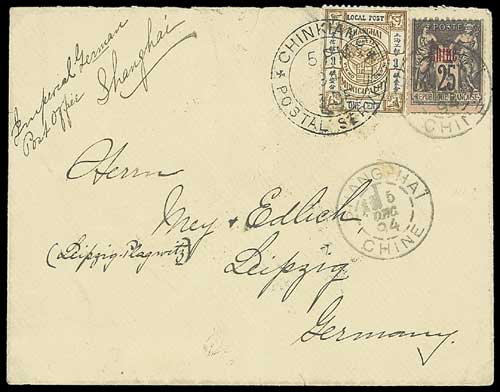 Imperial German
Post Office Shanghai
CHINKIANG
5
POSTAL SER
LOCAL POST
SHANGHAI
MUNICIPALITY
ONE CENT
POSTE
Chine
25
REPUBLIQUE FRANCAISE
CHINE
Herrn
Mey & Edlich,
(Leipzig-Plagwitz)
Leipzig
Germany.
ANG-HAI
5
DEC
94
CHINE